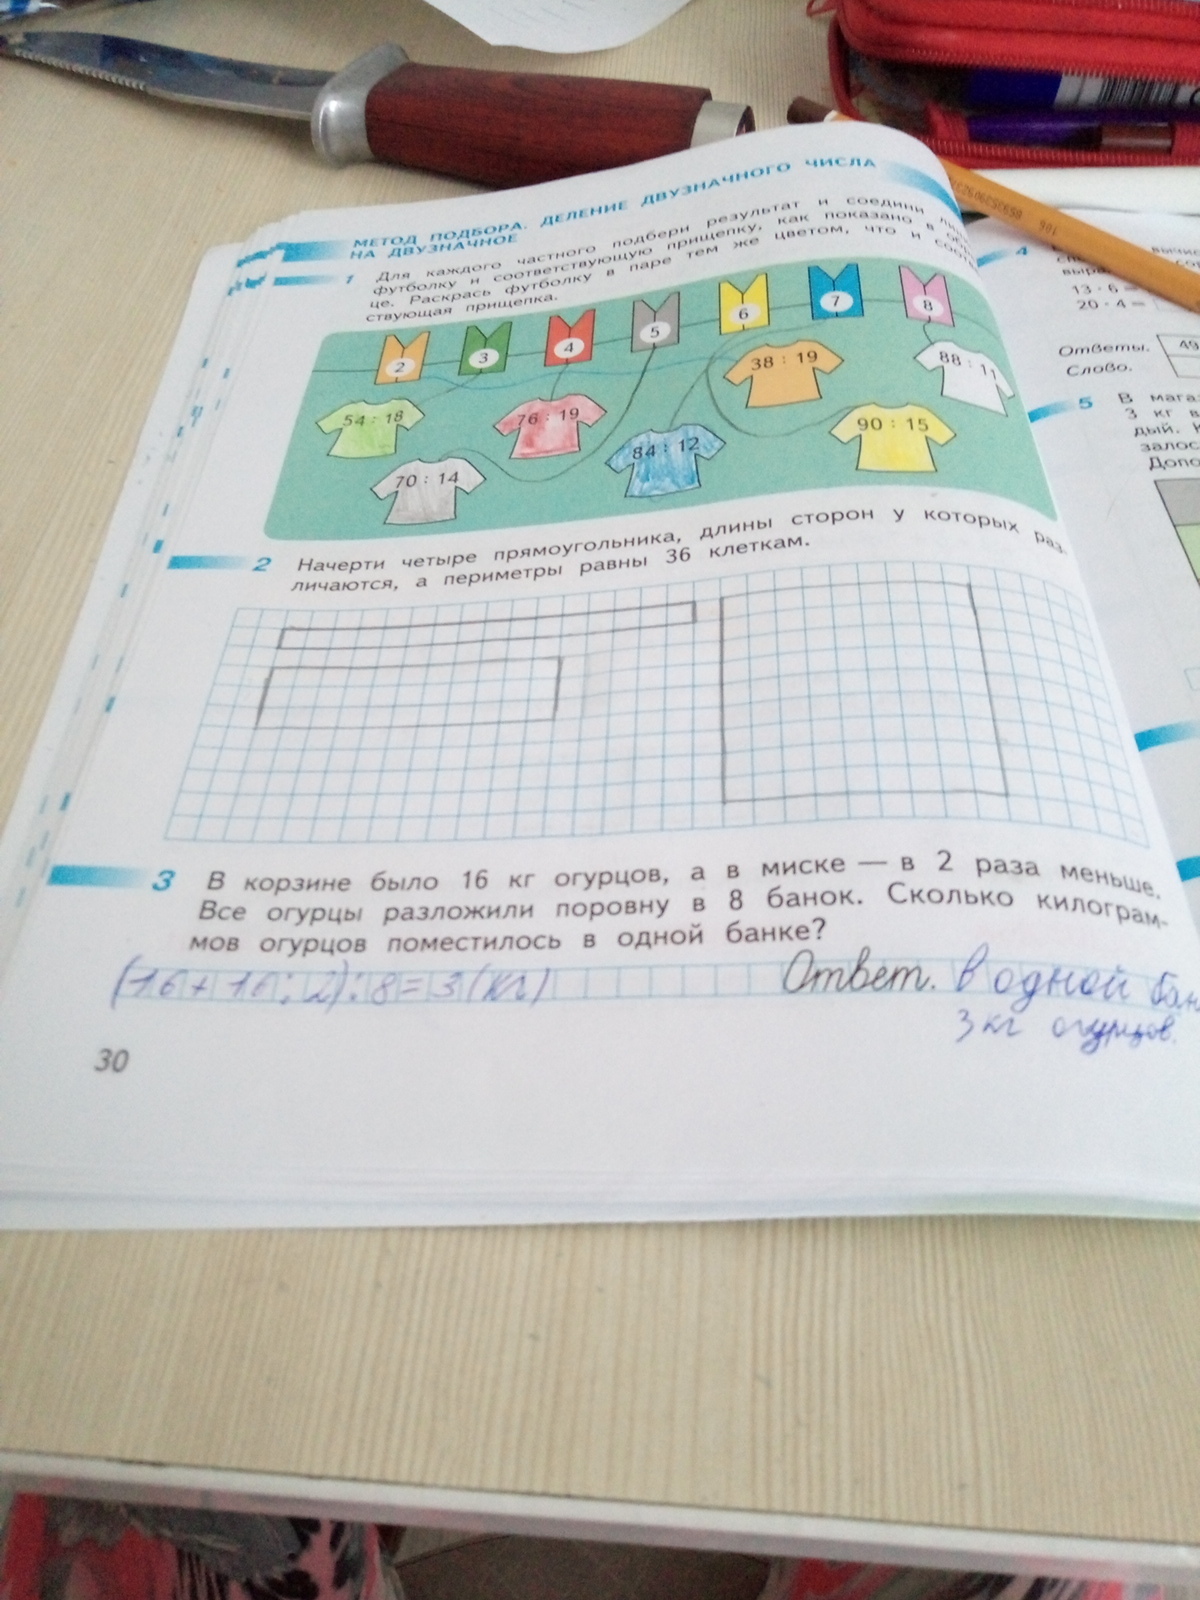 МЕТОД ПОДБОРА. ДЕЛЕНИЕ ДВУЗНАЧНОГО ЧИСЛА
НА ДВУЗНАЧНОЕ
1 Для каждого частного подбери результат и соедини
футболку и соответствующую прищепку, как показано в
це. Раскрась футболку в паре тем же цветом, что и
ствующая прищепка.
2 3 4 5 6 7 8
54 : 18 76 : 19 38 : 19 88 : 11
70 : 14 84 : 12 90 : 15
2 Начерти четыре прямоугольника, длины сторон у которых раз-
личаются, а периметры равны 36 клеткам.
3 В корзине было 16 кг огурцов, а в миске — в 2 раза меньше.
Все огурцы разложили поровну в 8 банок. Сколько килограм-
мов огурцов поместилось в одной банке?
(16 + 16 : 2) : 8 = 3 (кг) Ответ. в одной бан
3 кг огурцов.
30
4
13 · 6 =
20 · 4 =
Ответы. 49
Слово.
5 В мага
3 кг в
дый. К
залос
Допо